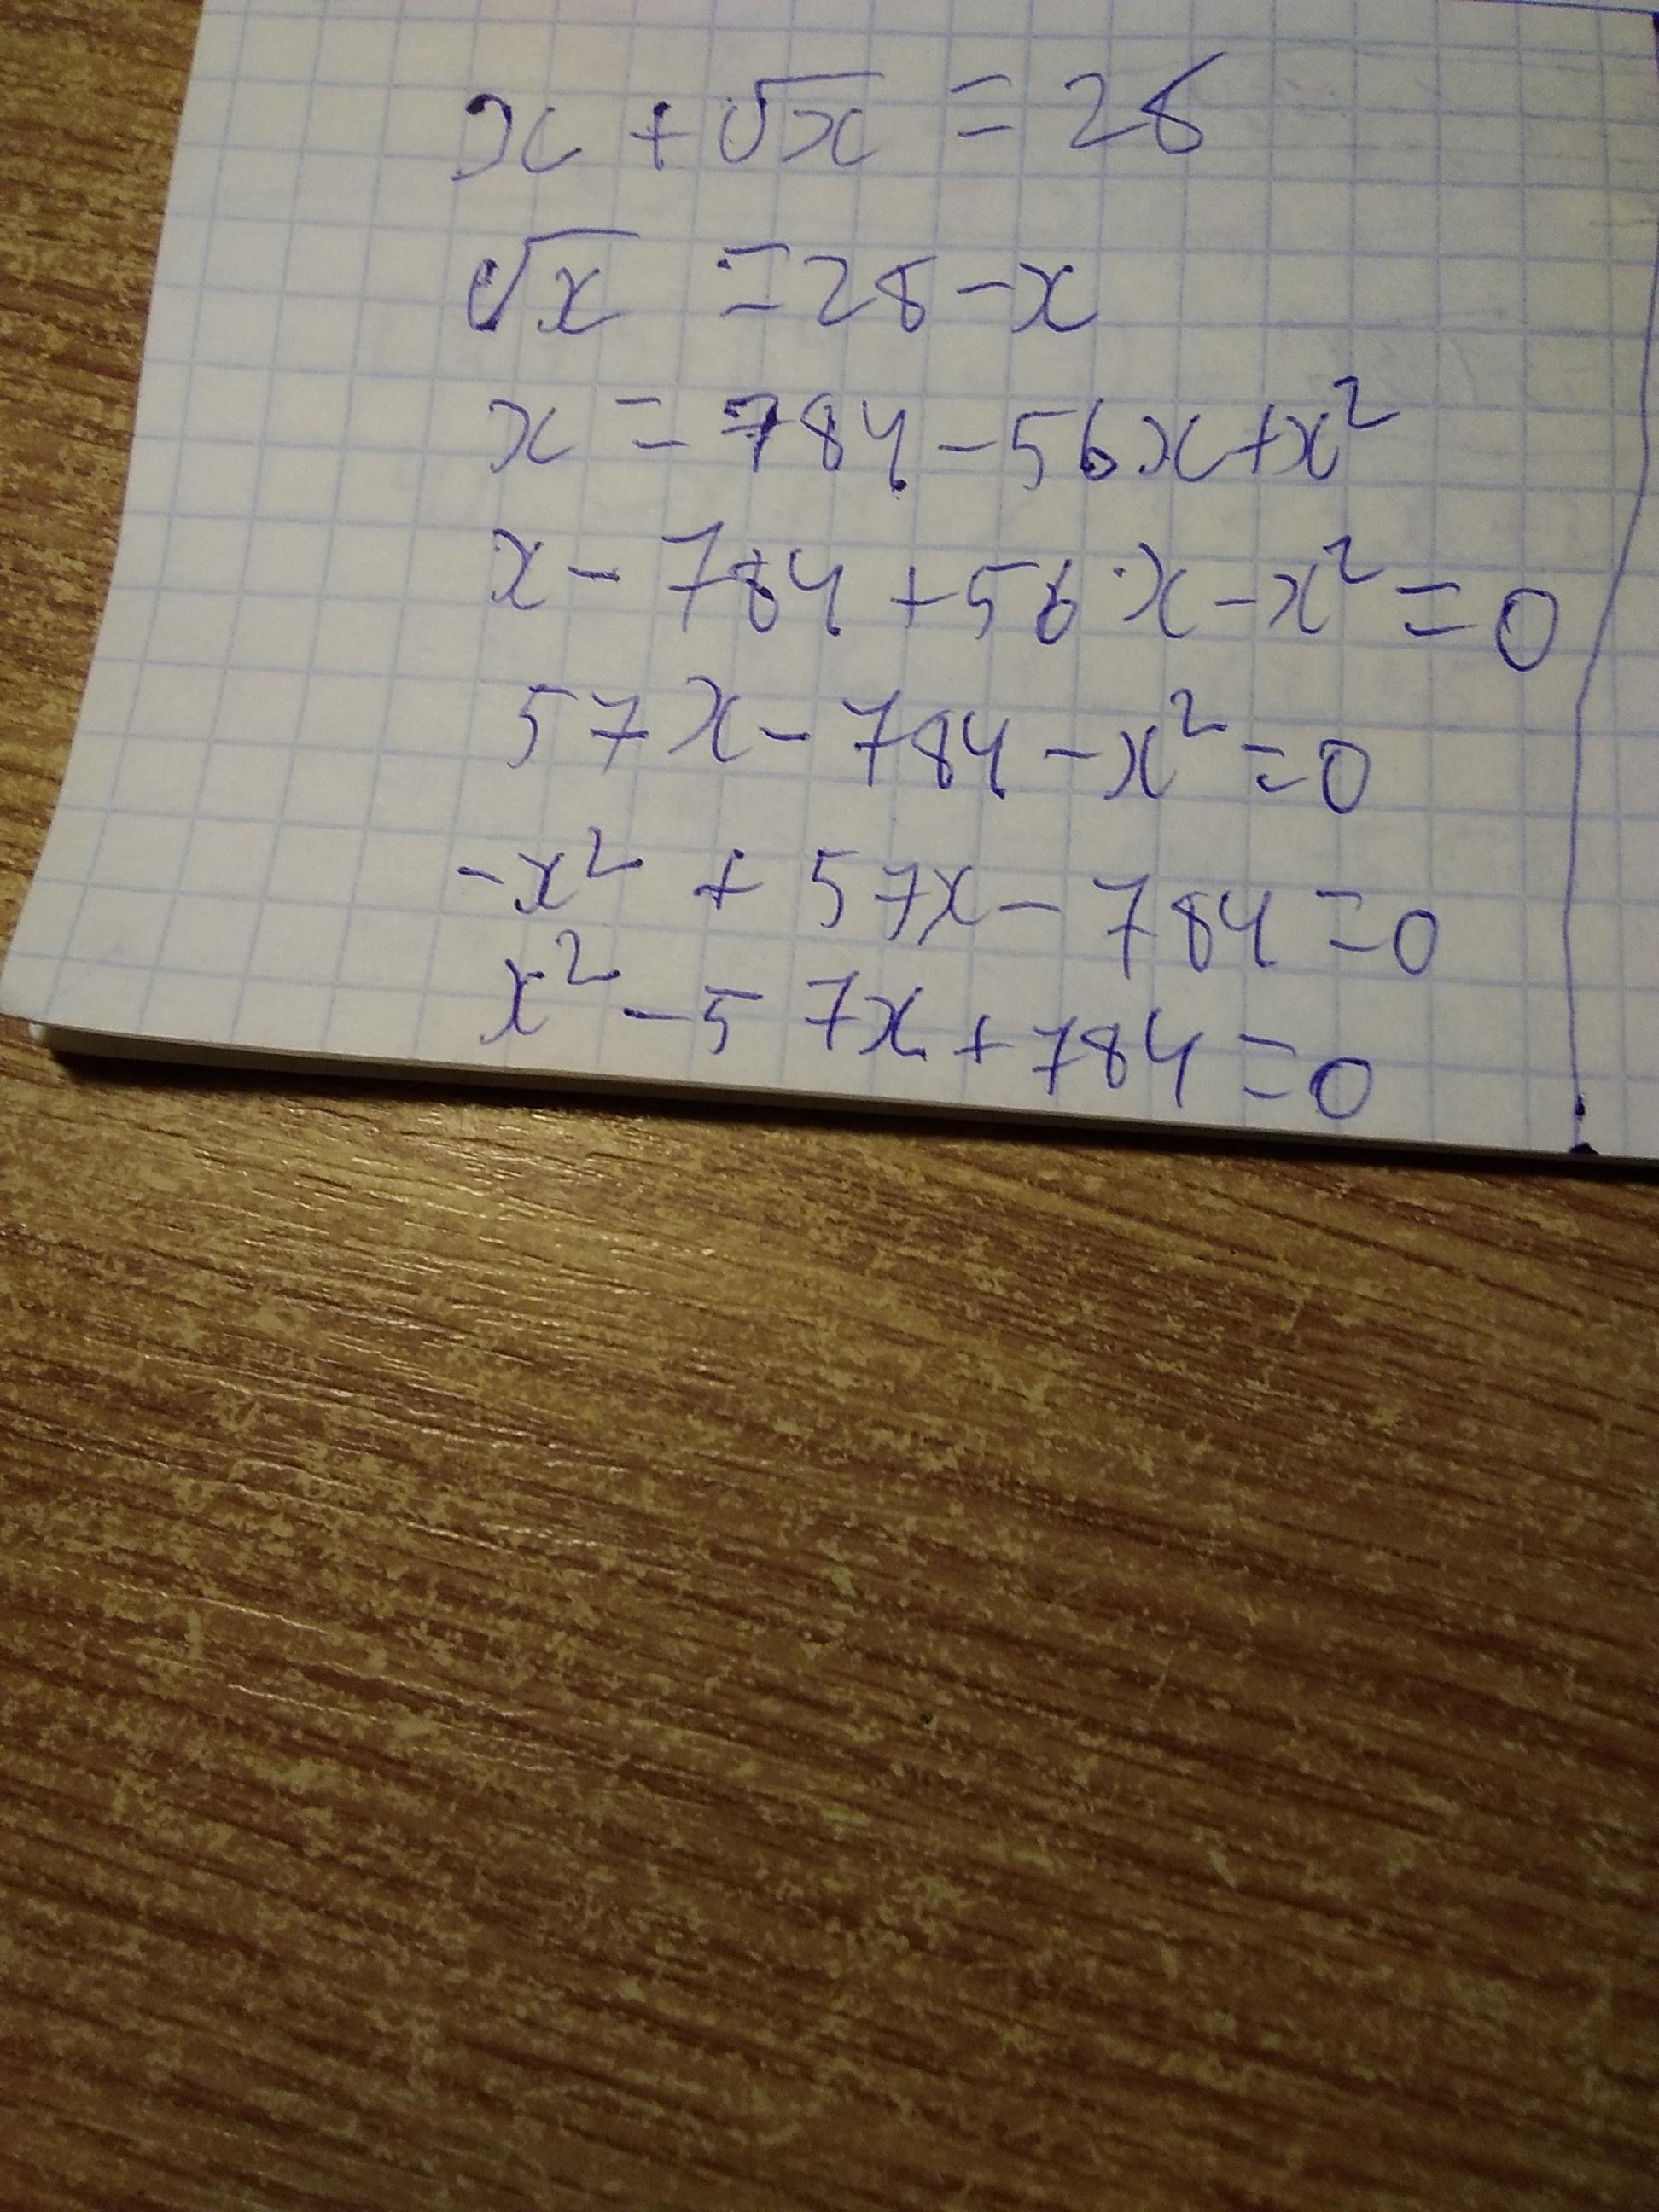 x + √x = 28
√x = 28 - x
x = 784 - 56x + x²
x - 784 + 56x - x² = 0
57x - 784 - x² = 0
-x² + 57x - 784 = 0
x² - 57x + 784 = 0